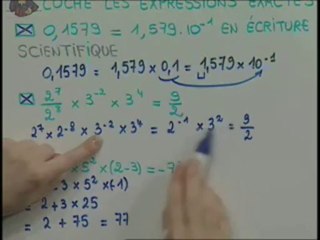 COCHE LES EXPRESSIONS EXACTES
☒ 0,1579 = 1,579.10⁻¹ EN ÉCRITURE
SCIENTIFIQUE
0,1579 = 1,579 × 0,1 = 1,579 × 10⁻¹
☒ 2⁷/2⁸ × 3⁻² × 3⁴ = 9/2
2⁷ × 2⁻⁸ × 3⁻² × 3⁴ = 2⁻¹ × 3² = 9/2
5² × (2-3) = -7
3 × 5² × (-1)
= 2 + 3 × 25
= 2 + 75 = 77